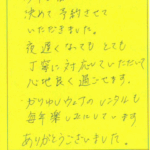 決めて予約させて
いただきました。
夜遅くなっても とても
丁寧に対応していただいて
心地良く過ごせます。
のレンタルも
毎年楽しみにしています
ありがとうございました。